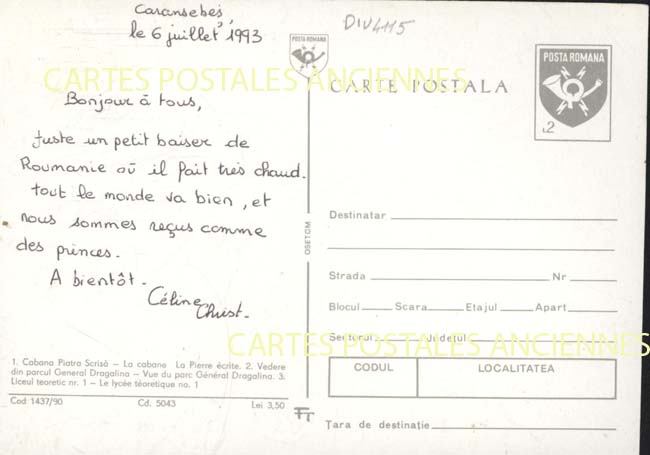 Caransebeş,
le 6 juillet 1993
DIV4115
Bonjour à tous,
Juste un petit baiser de
Roumanie où il fait très chaud.
tout le monde va bien, et
nous sommes reçus comme
des princes.
A bientôt.
Céline
Christ.
1. Cabana Piatra Scrisă – La cabane La Pierre écrite. 2. Vedere
din parcul General Dragalina – Vue du parc Général Dragalina. 3.
Liceul teoretic nr. 1 – Le lycée téoretique no. 1
Cod 1437/90 Cd. 5043 Lei 3,50
POSTA ROMANA
CARTE POSTALA
POSTA ROMANA
L2
OSETCM
Destinatar
Strada Nr
Blocul Scara Etajul Apart
Sectorul Județul
CODUL LOCALITATEA
Țara de destinație
CARTES POSTALES ANCIENNES
CARTES POSTALES ANCIENNES